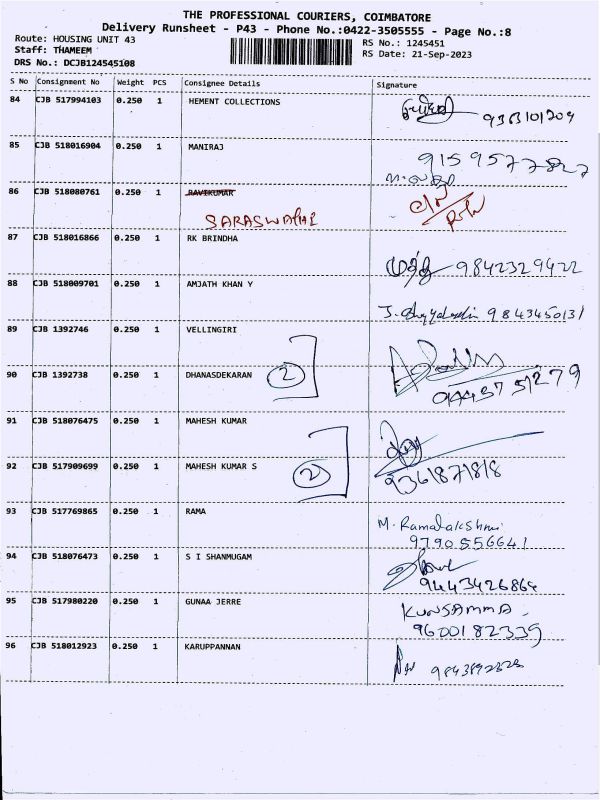 THE PROFESSIONAL COURIERS, COIMBATORE
Delivery Runsheet - P43 - Phone No.:0422-3505555 - Page No.:8
Route: HOUSING UNIT 43
RS No.: 1245451
Staff: THAMEEM
RS Date: 21-Sep-2023
DRS No.: DCJB124545108
S No Consignment No Weight PCS Consignee Details Signature
84 CJB 517994103 0.250 1 HEMENT COLLECTIONS
85 CJB 518016904 0.250 1 MANIRAJ
86 CJB 518080761 0.250 1 RAVIKUMAR
SARASWATHI
87 CJB 518016866 0.250 1 RK BRINDHA
9842329422
88 CJB 518009701 0.250 1 AMJATH KHAN Y
9843450131
89 CJB 1392746 0.250 1 VELLINGIRI
90 CJB 1392738 0.250 1 DHANASDEKARAN 2
91 CJB 518076475 0.250 1 MAHESH KUMAR
92 CJB 517909699 0.250 1 MAHESH KUMAR S 2
9361871818
93 CJB 517769865 0.250 1 RAMA
M. Ramalakshmi
9790556641
94 CJB 518076473 0.250 1 S I SHANMUGAM
9443426864
95 CJB 517980220 0.250 1 GUNAA JERRE
KUNSAMMA.
9600182339
96 CJB 518012923 0.250 1 KARUPPANNAN